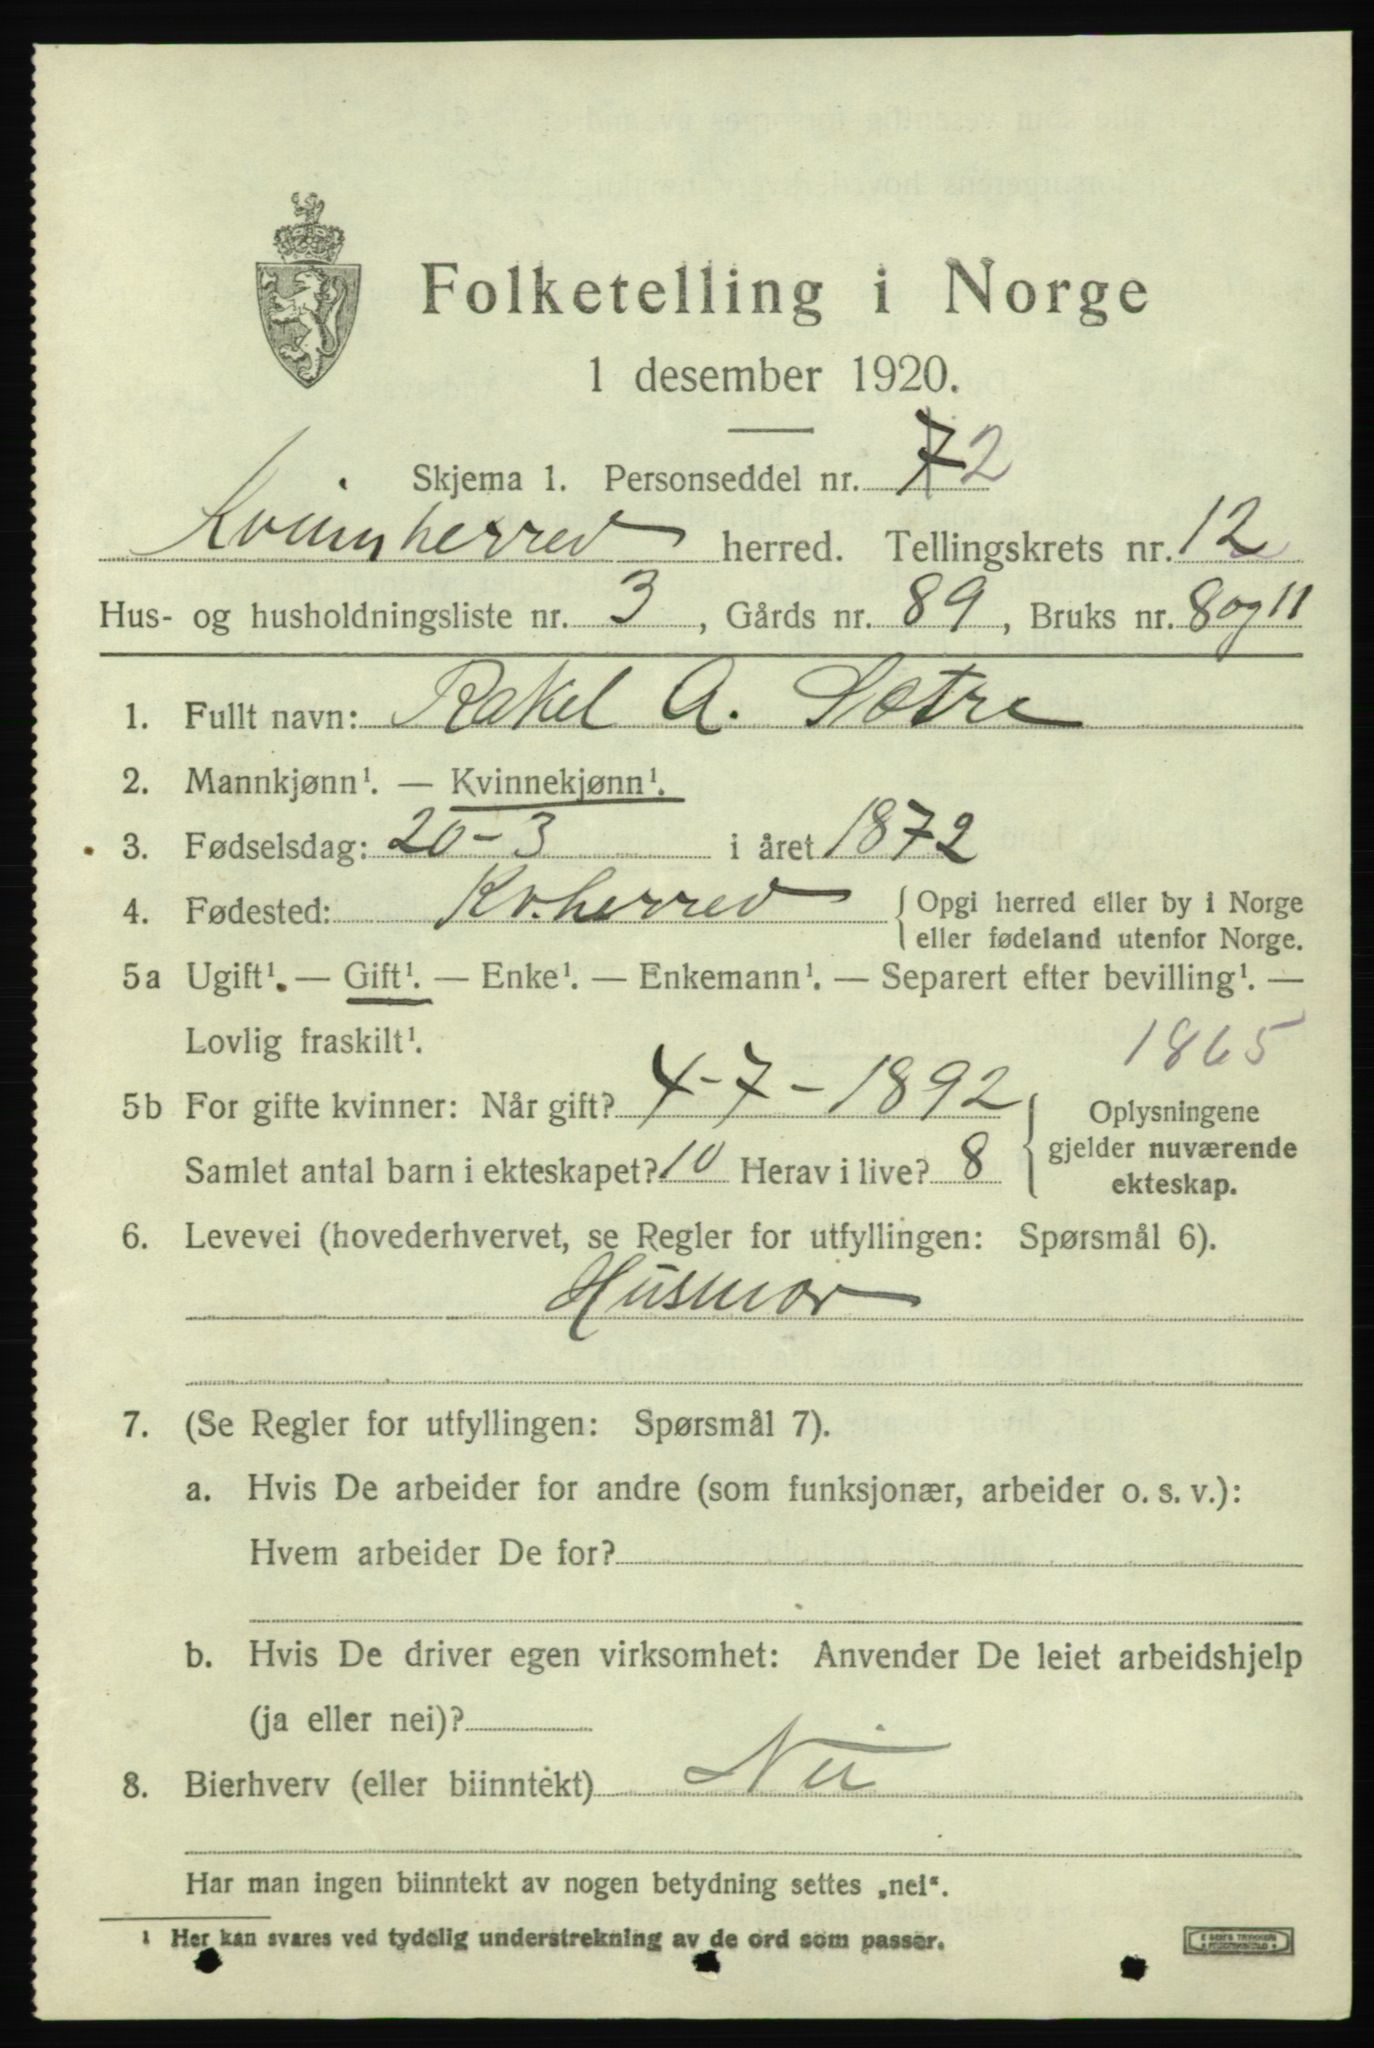 Folketelling i Norge
1 desember 1920.
Skjema 1. Personseddel nr. 7 2
Kvinnherred herred. Tellingskrets nr. 12
Hus- og husholdningsliste nr. 3, Gårds nr. 89, Bruks nr. 8 og 11
1. Fullt navn: Rakel A. Sætre
2. Mannkjønn¹. — Kvinnekjønn¹.
3. Fødselsdag: 20-3 i året 1872
4. Fødested: Kv.herred { Opgi herred eller by i Norge
eller fødeland utenfor Norge.
5a Ugift¹. — Gift¹. — Enke¹. — Enkemann¹. — Separert efter bevilling¹. —
Lovlig fraskilt¹.
1865
5b For gifte kvinner: Når gift? 4-7-1892
Samlet antal barn i ekteskapet? 10 Herav i live? 8
Oplysningene
gjelder nuværende
ekteskap.
6. Levevei (hovederhvervet, se Regler for utfyllingen: Spørsmål 6).
Husmor
7. (Se Regler for utfyllingen: Spørsmål 7).
a. Hvis De arbeider for andre (som funksjonær, arbeider o. s. v.):
Hvem arbeider De for?
b. Hvis De driver egen virksomhet: Anvender De leiet arbeidshjelp
(ja eller nei)?
8. Bierhverv (eller biinntekt) Nei
Har man ingen biinntekt av nogen betydning settes „nei“.
¹ Her kan svares ved tydelig understrekning av de ord som passer.